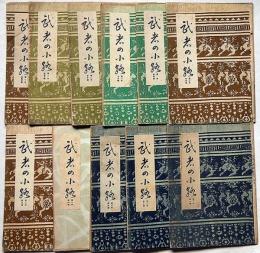 武者の小路
武者の小路
武者の小路
武者の小路
武者の小路
武者の小路
武者の小路
武者の小路
武者の小路
武者の小路
武者の小路